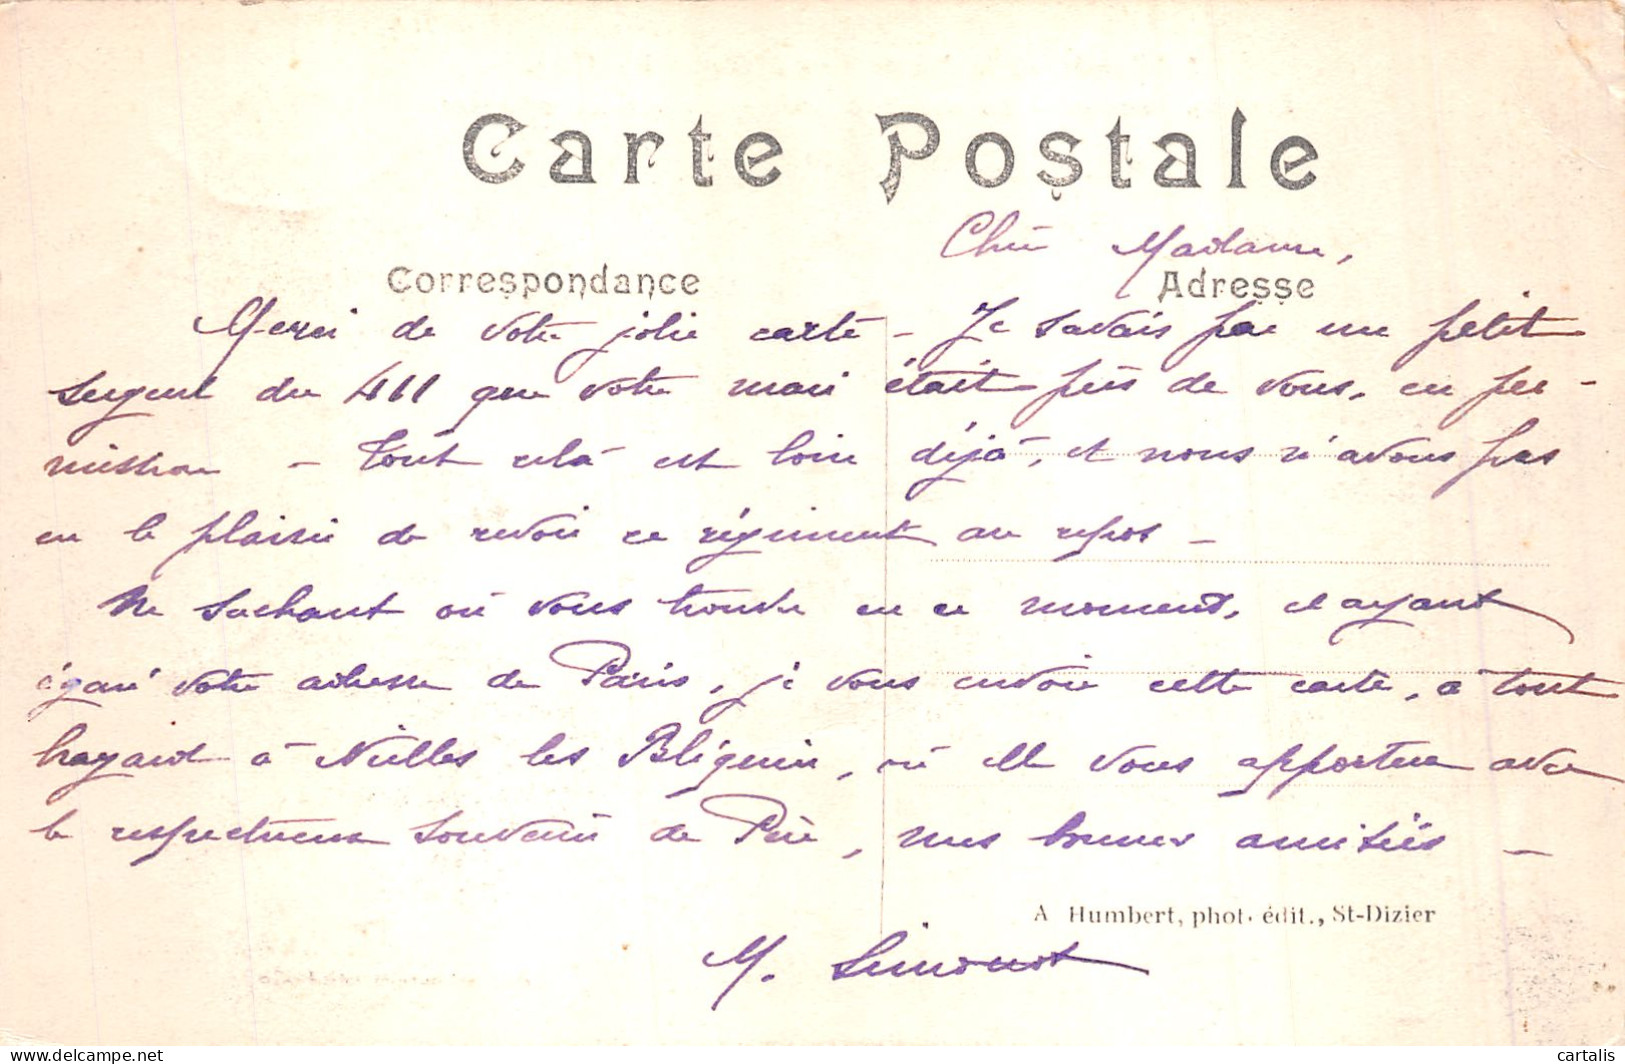 Carte Postale
Correspondance
Adresse
Chère Madame,
Merci de votre jolie carte - Je savais par un petit
sergent du 411 que votre mari était près de vous, en per-
mission - Tout cela est loin déjà, et nous n'avons pas
eu le plaisir de revoir ce régiment au repos -
Ne sachant où vous trouver en ce moment, et ayant
égaré votre adresse de Paris, je vous envoie cette carte, à tout
hazard à Nielles les Bléquin, où elle vous apportera avec
le respectueux souvenir de Père, mes bonnes amitiés -
M. Simonot
A Humbert, phot. édit., St-Dizier
cartalis